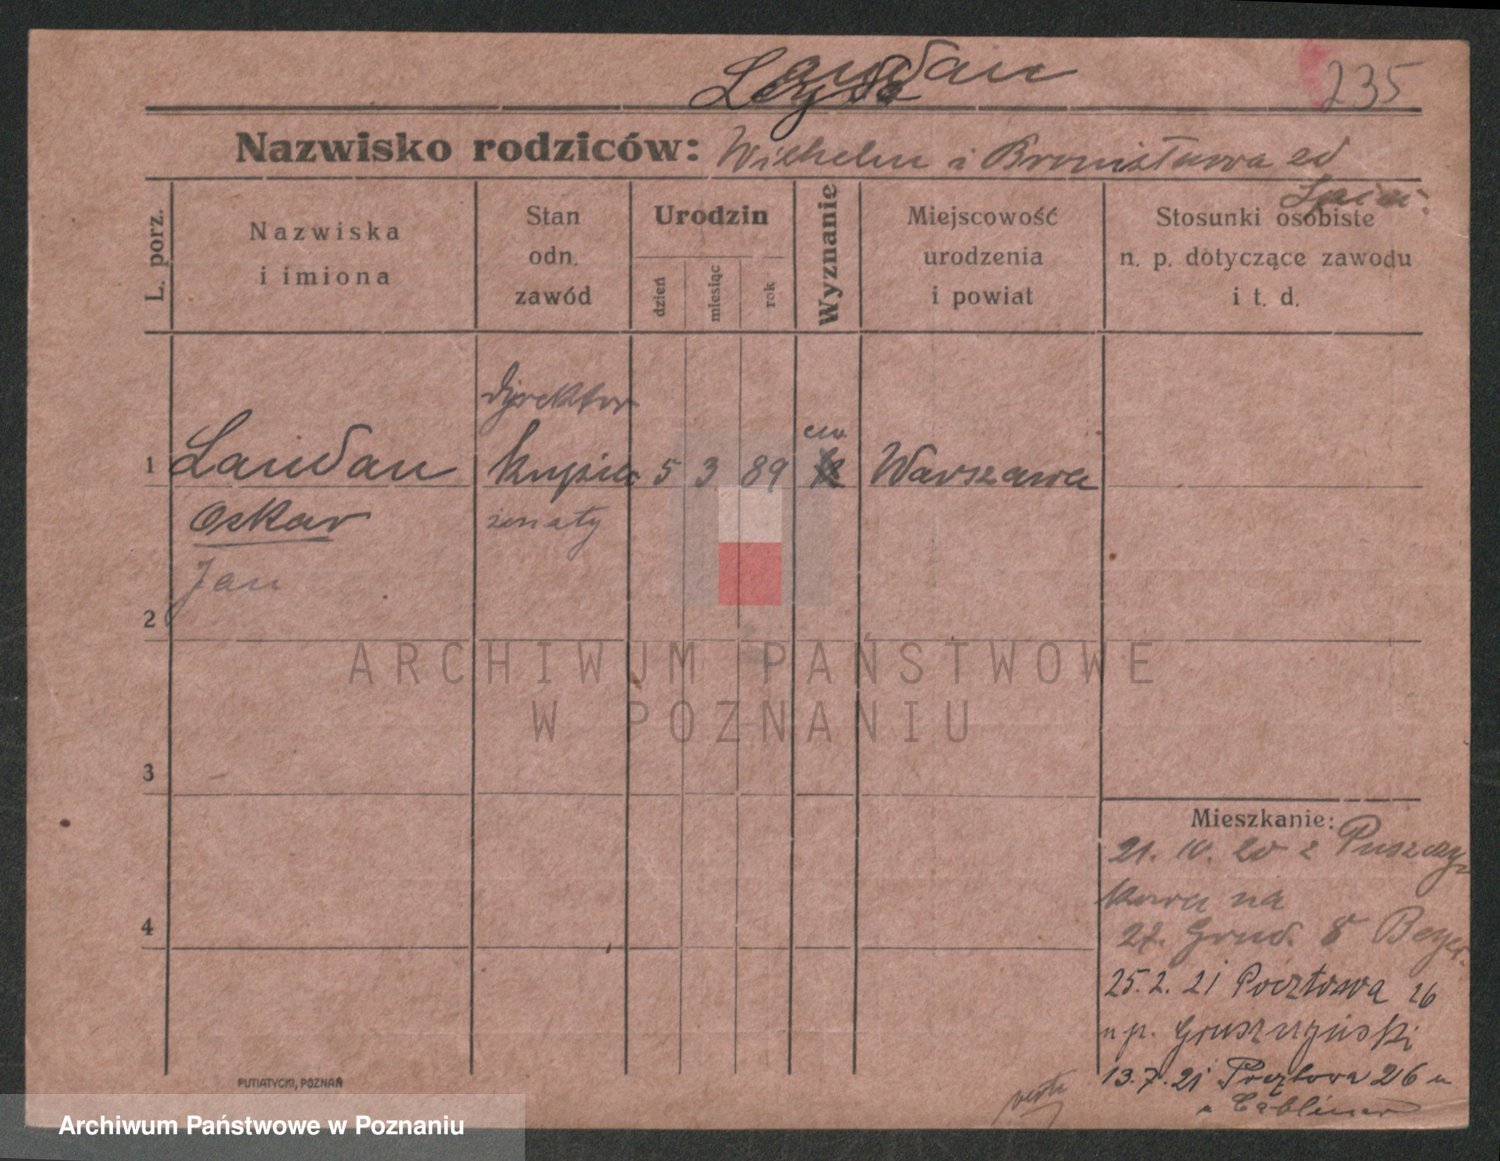 Landau
235
Nazwisko rodziców: Wilhelm i Bronisława
L. porz.
Nazwiska
i imiona
Stan
odn.
zawód
Urodzin
dzień
miesiąc
rok
Wyznanie
Miejscowość
urodzenia
i powiat
Stosunki osobiste
n. p. dotyczące zawodu
i t. d.
dyrektor
1 Landau kupiec 5 3 89 Warszawa
Oskar żonaty
Jan
2
3
4
ARCHIWUM PAŃSTWOWE
W POZNANIU
Mieszkanie:
21. 10. 20 z
na
27. Grud. 8
25. 2. 21 Pocztowa 26
Gruszczyński
13. 7. 21 Pocztowa 26
verte
PUTIATYCKI, POZNAŃ
Archiwum Państwowe w Poznaniu